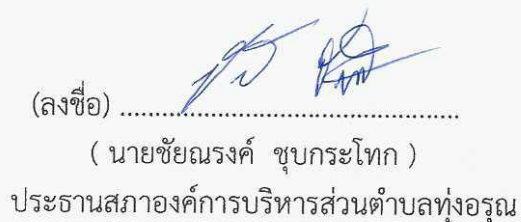 (ลงชื่อ) ..................................................
( นายชัยณรงค์ ชุบกระโทก )
ประธานสภาองค์การบริหารส่วนตำบลทุ่งอรุณ